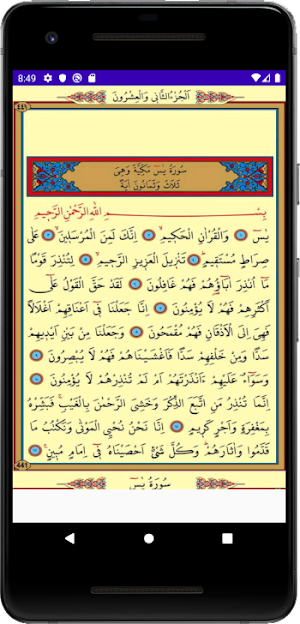 8:49
اَلْجُزْءُ الثَّانِي وَالْعِشْرُونَ
٤٤١
سُورَةُ يٰسٓ مَكِّيَّةٌ وَهِيَ
ثَلَاثٌ وَثَمَانُونَ اٰيَةً
بِسْمِ اللّٰهِ الرَّحْمٰنِ الرَّحِيمِ
يٰسٓ ۝ وَالْقُرْاٰنِ الْحَكِيمِ ۝ اِنَّكَ لَمِنَ الْمُرْسَلِينَ ۝ عَلٰى
صِرَاطٍ مُسْتَقِيمٍ ۝ تَنْزِيلَ الْعَزِيزِ الرَّحِيمِ ۝ لِتُنْذِرَ قَوْمًا
مَٓا اُنْذِرَ اٰبَٓاؤُ۬هُمْ فَهُمْ غَافِلُونَ ۝ لَقَدْ حَقَّ الْقَوْلُ عَلٰٓى
اَكْثَرِهِمْ فَهُمْ لَا يُؤْمِنُونَ ۝ اِنَّا جَعَلْنَا فِٓي اَعْنَاقِهِمْ اَغْلَالًا
فَهِيَ اِلَى الْاَذْقَانِ فَهُمْ مُقْمَحُونَ ۝ وَجَعَلْنَا مِنْ بَيْنِ اَيْدِيهِمْ
سَدًّا وَمِنْ خَلْفِهِمْ سَدًّا فَاَغْشَيْنَاهُمْ فَهُمْ لَا يُبْصِرُونَ ۝
وَسَوَٓاءٌ عَلَيْهِمْ ءَاَنْذَرْتَهُمْ اَمْ لَمْ تُنْذِرْهُمْ لَا يُؤْمِنُونَ ۝
اِنَّمَا تُنْذِرُ مَنِ اتَّبَعَ الذِّكْرَ وَخَشِيَ الرَّحْمٰنَ بِالْغَيْبِۚ فَبَشِّرْهُ
بِمَغْفِرَةٍ وَاَجْرٍ كَرِيمٍ ۝ اِنَّا نَحْنُ نُحْيِ الْمَوْتٰى وَنَكْتُبُ مَا
قَدَّمُوا وَاٰثَارَهُمْۜ وَكُلَّ شَيْءٍ اَحْصَيْنَاهُ فِٓي اِمَامٍ مُبِينٍ ۝
441
سُورَةُ يٰسٓ